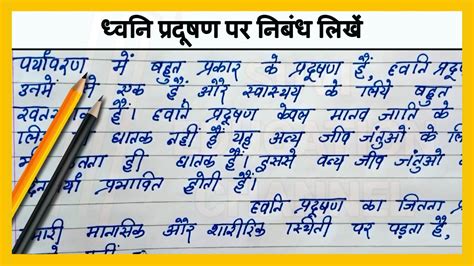 ध्वनि प्रदूषण पर निबंध लिखें
पर्यावरण में बहुत प्रकार के प्रदूषण हैं, ध्वनि
उनमें से एक हैं और स्वास्थ्य के लिये बहुत
हैं। ध्वनि प्रदूषण केवल मानव जाति के
घातक नहीं हैं यह अन्य जीव जंतुओं के
ही घातक हैं। इससे वन्य जीव जंतुओं
प्रभावित होती हैं।
ध्वनि प्रदूषण का जितना
मानसिक और शारीरिक स्थिती पर पड़ता है,
CHANNEL